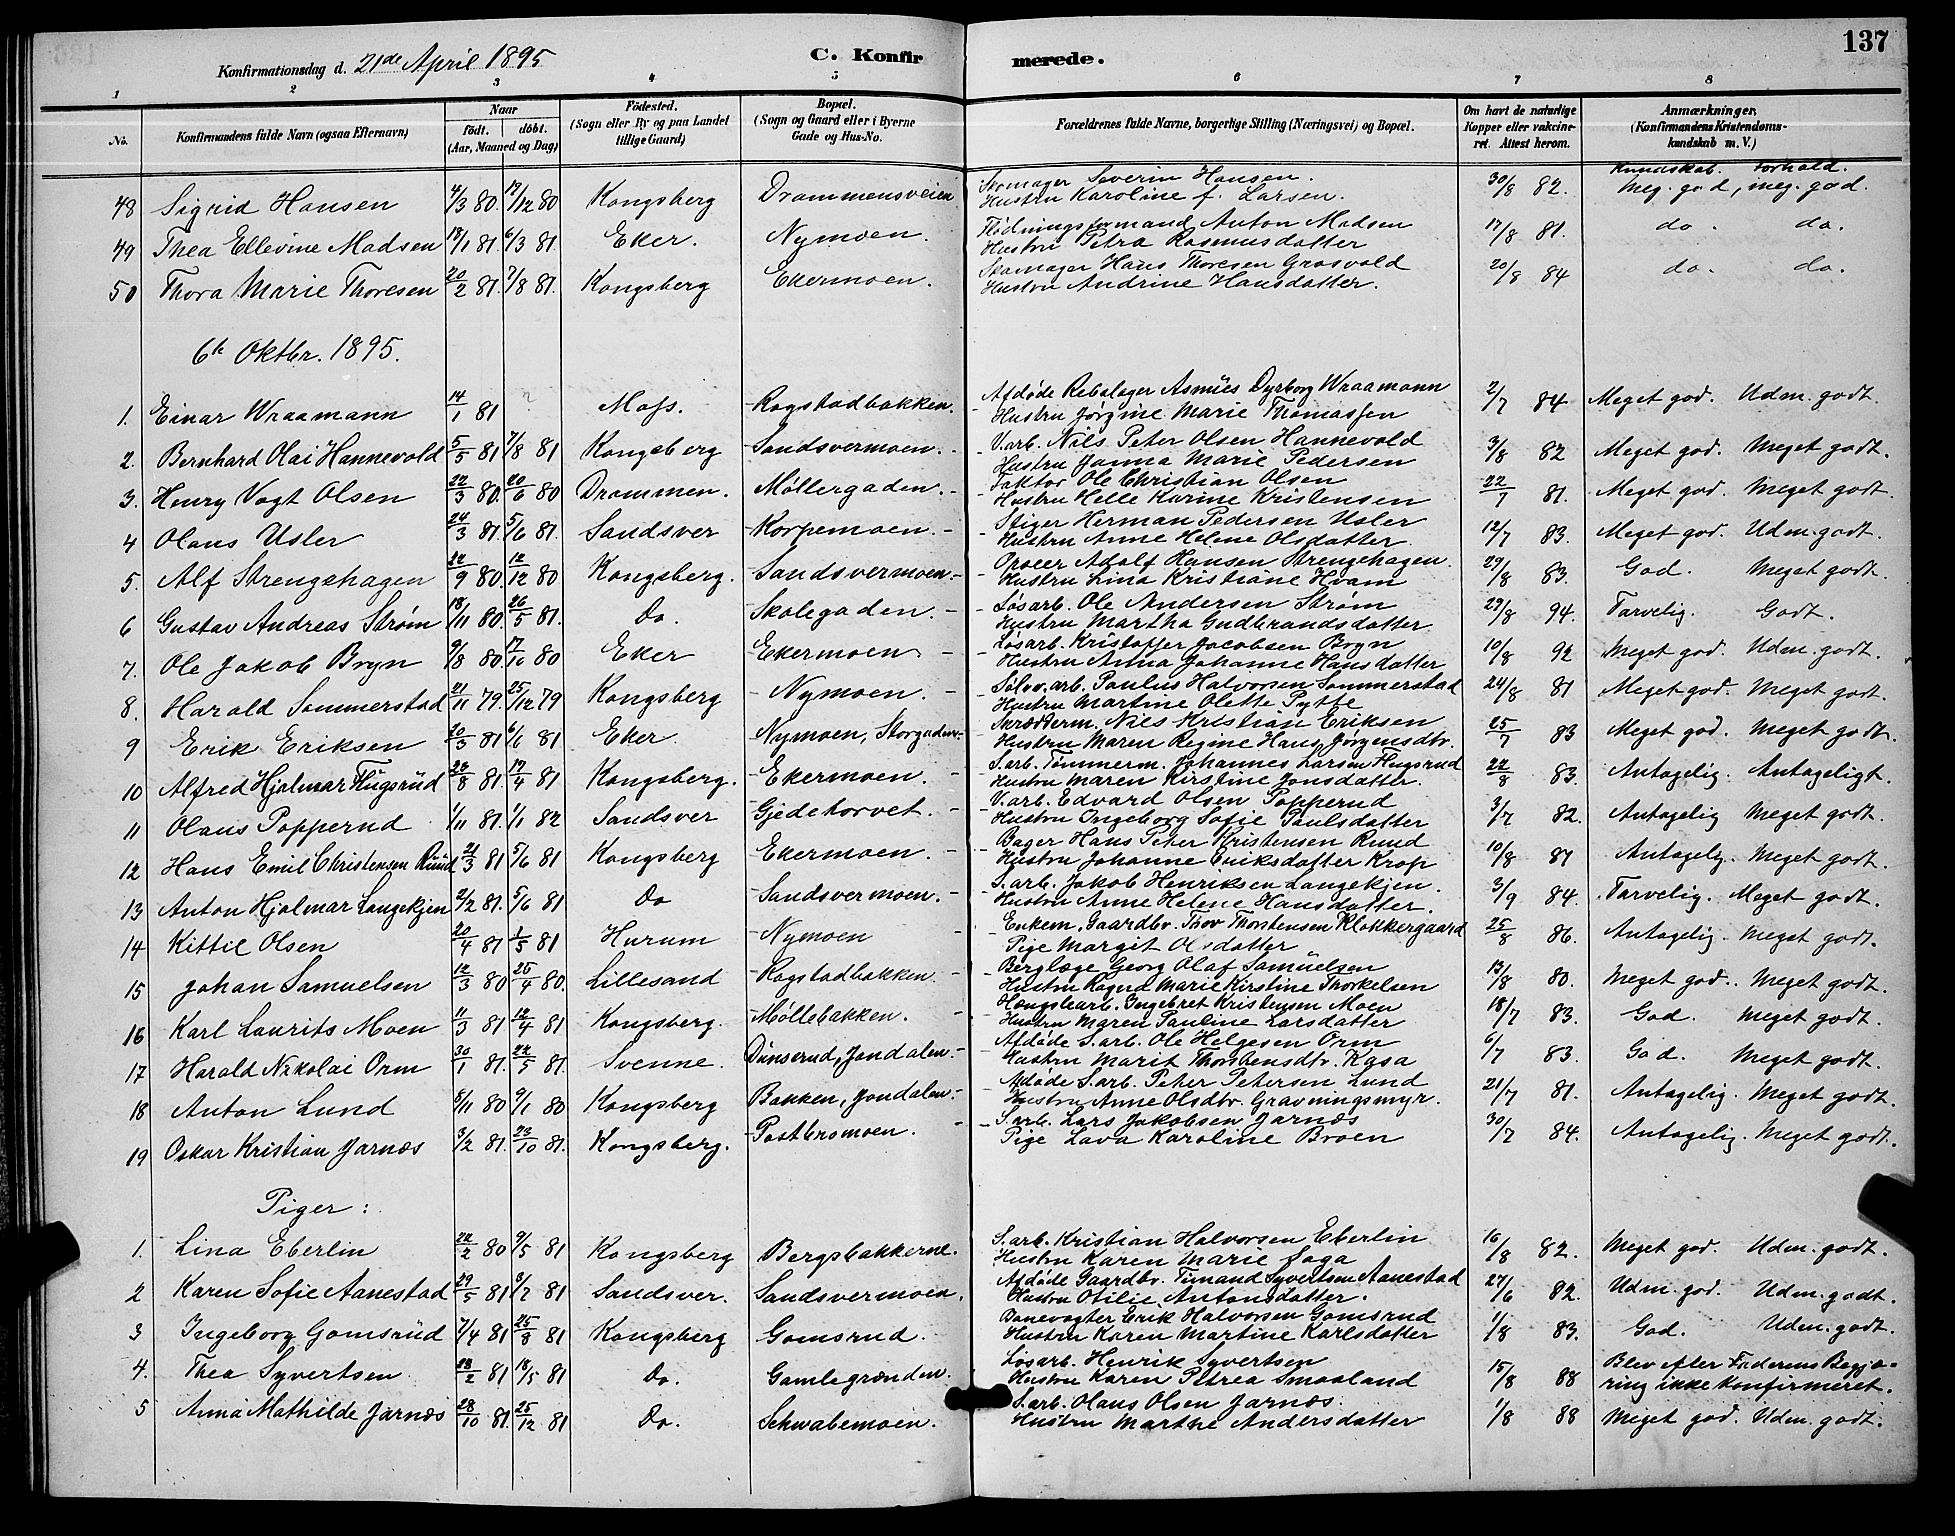 137
Konfirmationsdag d. 21de April 1895
C. Konfirmerede.
1 2 3 4 5 6 7 8
No. Konfirmandens fulde Navn (ogsaa Efternavn) Naar født. døbt. (Aar, Maaned og Dag) Fødested. (Sogn eller By og paa Landet tillige Gaard) Bopæl. (Sogn og Gaard eller i Byerne Gade og Hus-No. Forældrenes fulde Navne, borgerlige Stilling (Næringsvei) og Bopæl. Om havt de naturlige Kopper eller vakcineret. Attest herom. Anmærkninger. (Konfirmandens Kristendomskundskab m. V.)
Kundskab. Forhold.
48 Sigrid Hansen 4/3 80. 17/12 80 Kongsberg Drammensveien Skomager Severin Hansen. Hustru Karoline f. Larsen. 30/8 82. Meg. god, meg. god.
49 Thea Ellevine Madsen 18/1 81 6/3 81. Eker. Nymoen. Flødningsformand Anton Madsen Hustru Petra Rasmusdatter 17/8 81. do. do.
50 Thora Marie Thoresen 20/2 81. 7/8 81. Kongsberg Ekermoen. Skomager Hans Thoresen Grosvold Hustru Andrine Hansdatter. 20/8 84 do. do.
6te Oktbr. 1895.
1. Einar Wraamann 14/1 81 Moss. Rogstadbakken. Afdøde Rebslager Asmus Dyrborg Wraamann Hustru Jørgine Marie Thomassen 2/7 84 Meget god. Udm. godt.
2. Bernhard Olai Hannevold 5/5 81 7/8 81 Kongsberg Sandsvermoen. V.arb. Nils Peter Olsen Hannevold Hustru Janna Marie Pedersen 3/8 82 Meget god. Meget godt.
3. Henry Vogt Olsen 22/3 80. 20/6 80 Drammen. Møllergaden. Faktor Ole Christian Olsen Hustru Helle Karine Kristensen 22/7 81. Meget god. Meget godt.
4 Olaus Usler 24/3 81 5/6 81. Sandsver Korpemoen. Stiger Herman Pedersen Usler Hustru Anne Helene Olsdatter. 12/7 83. Meget god. Udm. godt.
5. Alf Strengehagen 22/9 80. 12/12 80 Kongsberg. Sandsvermoen. Opseer Adolf Hansen Strengehagen. Hustru Lina Kristiane Hvam 29/8 83. God. Meget godt.
6 Gustav Andreas Strøm 18/11 80. 26/5 81. Do. Skolegaden. Løsarb. Ole Andersen Strøm Hustru Martha Gudbrandsdatter 29/8 94. Tarvelig. Godt.
7. Ole Jakob Bryn 9/8 80. 17/10 80 Eker Ekermoen Løsarb. Kristoffer Jacobsen Bryn Hustru Anna Johanne Hansdatter 10/8 92 Meget god. Udm. godt.
8. Harald Sommerstad 21/11 79. 25/12 79 Kongsberg Nymoen. Sølvv.arb. Paulus Halvorsen Sommerstad Hustru Martine Olette Pytte 24/8 81 Meget god. Meget godt.
9 Erik Eriksen 20/3 81 6/6 81 Eker Nymoen, Storgaden. Skrædderm. Nils Kristian Eriksen Hustru Maren Regine Hans Jørgensdtr. 25/7 83 Meget god. Meget godt.
10 Alfred Hjalmar Flugsrud 28/8 81. 17/4 81 Kongsberg. Ekermoen. S.arb. Tømmerm. Johannes Larsen Flugsrud Hustru Maren Kirstine Jonsdatter. 22/8 83. Antagelig. Antageligt.
11 Olaus Popperud 1/11 81. 1/1 82 Sandsver Gjedetorvet. V.arb. Edvard Olsen Popperud Hustru Ingeborg Sofie Paulsdatter 3/7 82. Antagelig Meget godt.
12 Hans Emil Christensen Ruud 21/3 81 5/6 81 Kongsberg Ekermoen. Bager Hans Peter Kristensen Ruud Hustru Johanne Eriksdatter Krop 10/8 81 Antagelig. Meget godt.
13 Anton Hjalmar Langekjen 2/2 81. 5/6 81 Do Sandsvermoen. S.arb. Jakob Henriksen Langekjen. Hustru Anne Helene Hansdatter. 3/9 84. Tarvelig. Meget godt.
14 Kittil Olsen 20/4 81 1/5 81 Hurum Nymoen Enkem. Gaardbr. Thov Thorstensen Klokkergaard Pige Margit Olsdatter 25/8 86. Antagelig. Meget godt.
15 Johan Samuelsen 12/3 80 25/4 80. Lillesand Rogstadbakken. Berglæge Georg Olaf Samuelsen Hustru Ragna Marie Kirstine Thorkelsen 13/8 80. Meget god. Meget godt.
16 Karl Laurits Moen 11/3 81 12/4 81 Kongsberg. Møllebakken. Hængslearb. Ingebret Kristensen Moen Hustru Maren Pauline Larsdatter 18/7 83. God. Meget godt.
17 Harald Nikolai Orm 30/1 81. 22/5 81. Svenne. Dunserud, Jondalen. Afdøde S.arb. Ole Helgesen Orm Hustru Marit Thorstensdtr. Kasa 6/7 83. God. Meget godt.
18 Anton Lund 5/11 80 9/1 80 Kongsberg Bakken, Jondalen. Afdøde S.arb. Peter Petersen Lund Hustru Anne Olsdtr. Gravningsmyr. 21/7 81. Antagelig. Meget godt.
19 Oskar Kristian Jarnæs 3/2 81. 23/10 81. Kongsberg. Postbromoen. S.arb. Lars Jakobsen Jarnæs Pige Lava Karoline Broen 30/7 84. Antagelig. Meget godt.
Piger:
1. Lina Eberlin 22/2 80 9/5 81 Kongsberg Bergsbakkerne. S.arb. Kristian Halvorsen Eberlin Hustru Karen Marie Saga 16/8 82. Meget god. Udm. godt.
2 Karen Sofie Aanestad 29/5 81 3/7 81 Sandsver. Sandsvermoen. Afdøde Gaardbr. Timand Syvertsen Aanestad Hustru Otilie Antonsdatter. 27/6 82. Udm. god. Udm. godt.
3 Ingeborg Gomsrud 7/4 81 25/8 81 Kongsberg Gomsrud. Banevogter Erik Halvorsen Gomsrud Hustru Karen Martine Karlsdatter 1/8 83. God. Udm. godt.
4. Thea Syvertsen 13/2 81 18/5 81 Do. Gamlegrænden. Løsarb. Henrik Syvertsen Hustru Karen Petrea Smaaland 15/8 88 Blev efter Faderens Begjæring ikke konfirmeret.
5 Anna Mathilde Jarnæs 28/10 81. 25/12 81 Do. Schwabemoen. S.arb. Hans Olsen Jarnæs. Hustru Marthe Andersdatter 1/8 88 Meget god. Udm. godt.